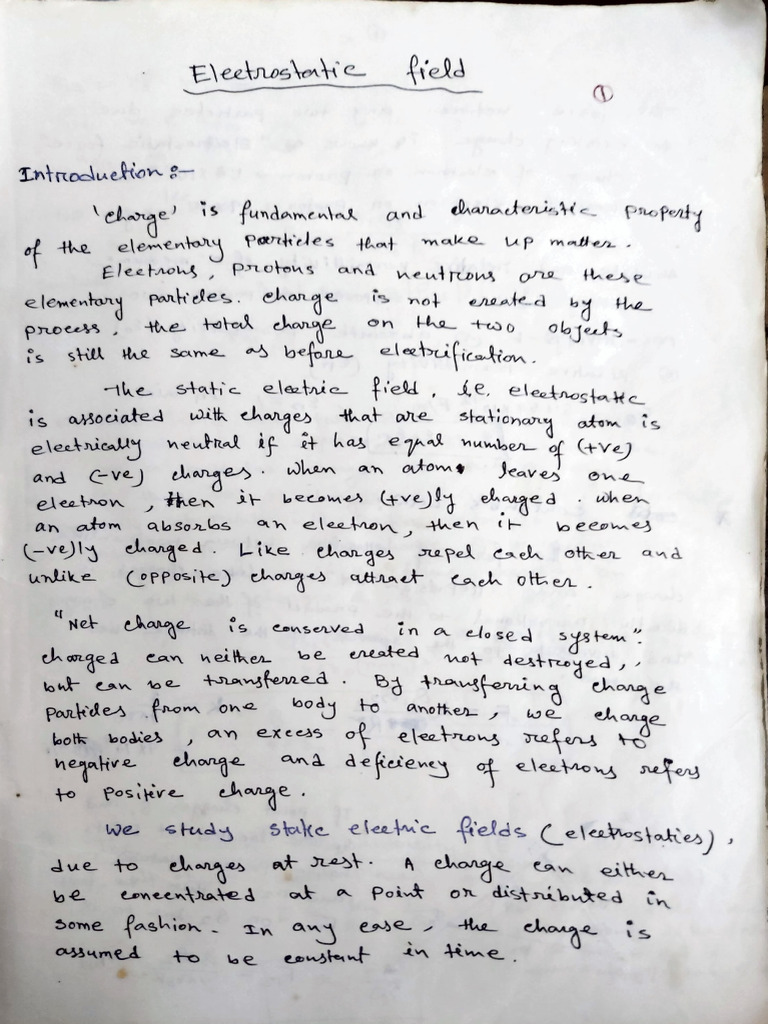 Electrostatic field
①
Introduction :-
'charge' is fundamental and characteristic property
of the elementary particles that make up matter.
Electrons, protons and neutrons are these
elementary particles. charge is not created by the
process, the total charge on the two objects
is still the same as before electrification.
The static electric field, i.e. electrostatic
is associated with charges that are stationary atom is
electrically neutral if it has equal number of (+ve)
and (-ve) charges. when an atom leaves one
electron, then it becomes (+ve)ly charged. when
an atom absorbs an electron, then it becomes
(-ve)ly charged. Like charges repel each other and
unlike (opposite) charges attract each other.
"Net charge is conserved in a closed system".
charged can neither be created not destroyed,,
but can be transferred. By transferring charge
particles from one body to another, we charge
both bodies, an excess of electrons refers to
negative charge and deficiency of electrons refers
to positive charge.
We study static electric fields (electrostatics),
due to charges at rest. A charge can either
be concentrated at a point or distributed in
some fashion. In any case, the charge is
assumed to be constant in time.